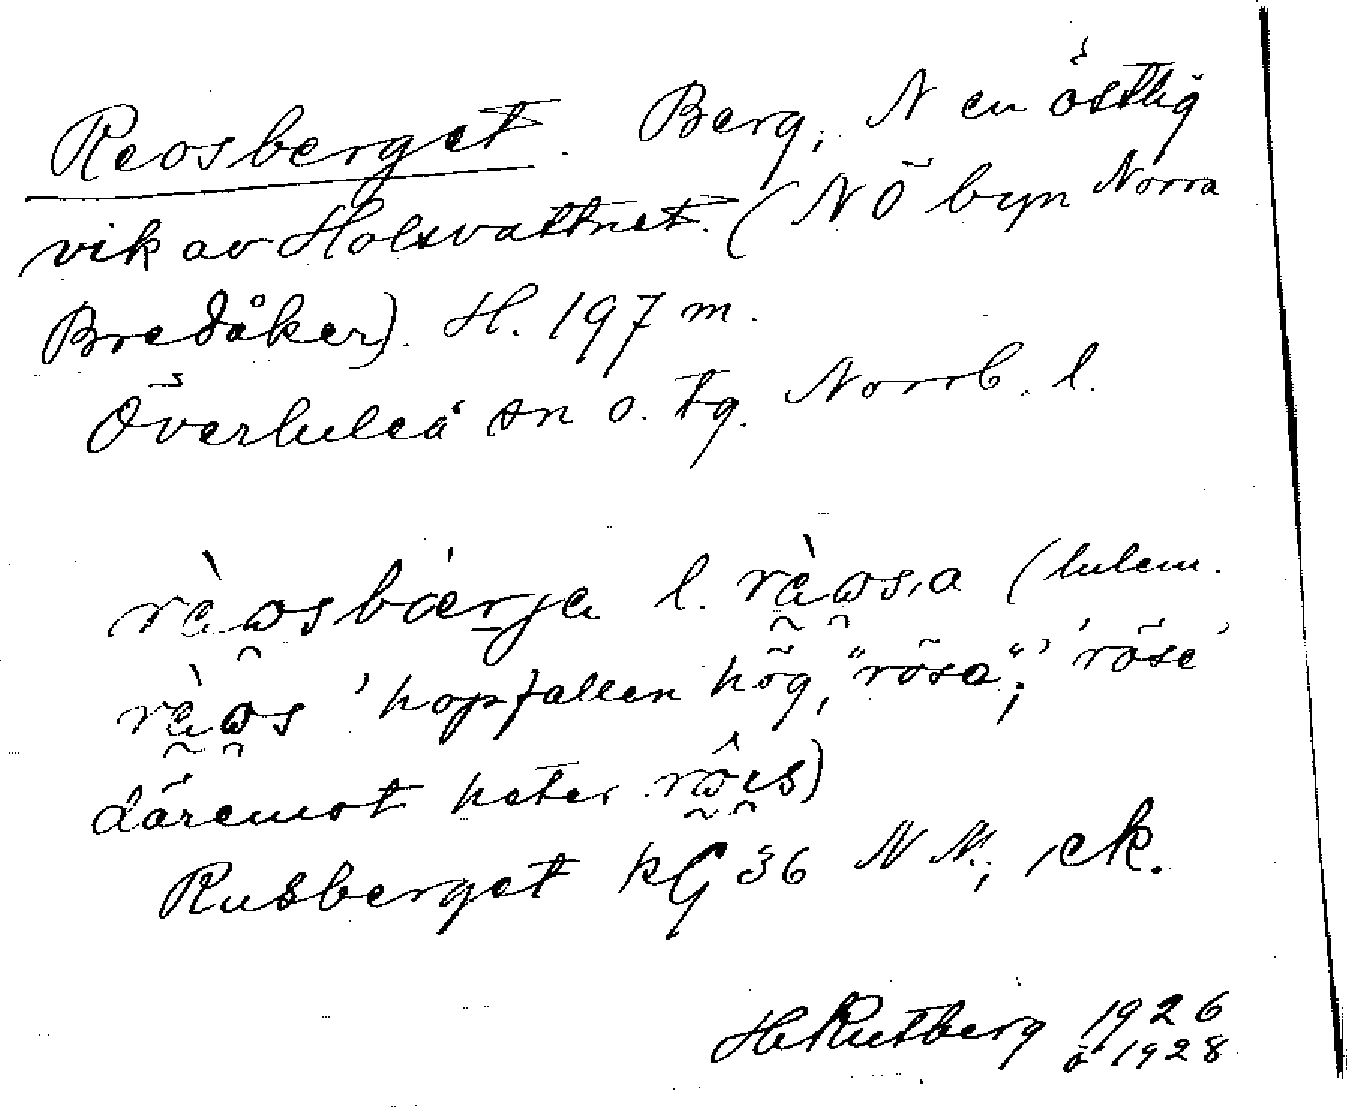 Reosberget. Berg, N en östlig
vik av Holsvattnet. (NÖ byn Norra
Bredåker). H. 197 m.
Överluleå sn o. tg. Norrb. l.
l. (lulem.
'hopfallen hög, "rösa"; 'röse'
däremot heter
Rusberget kG 36 N N.; ek.
HRutberg 1926
ö 1928